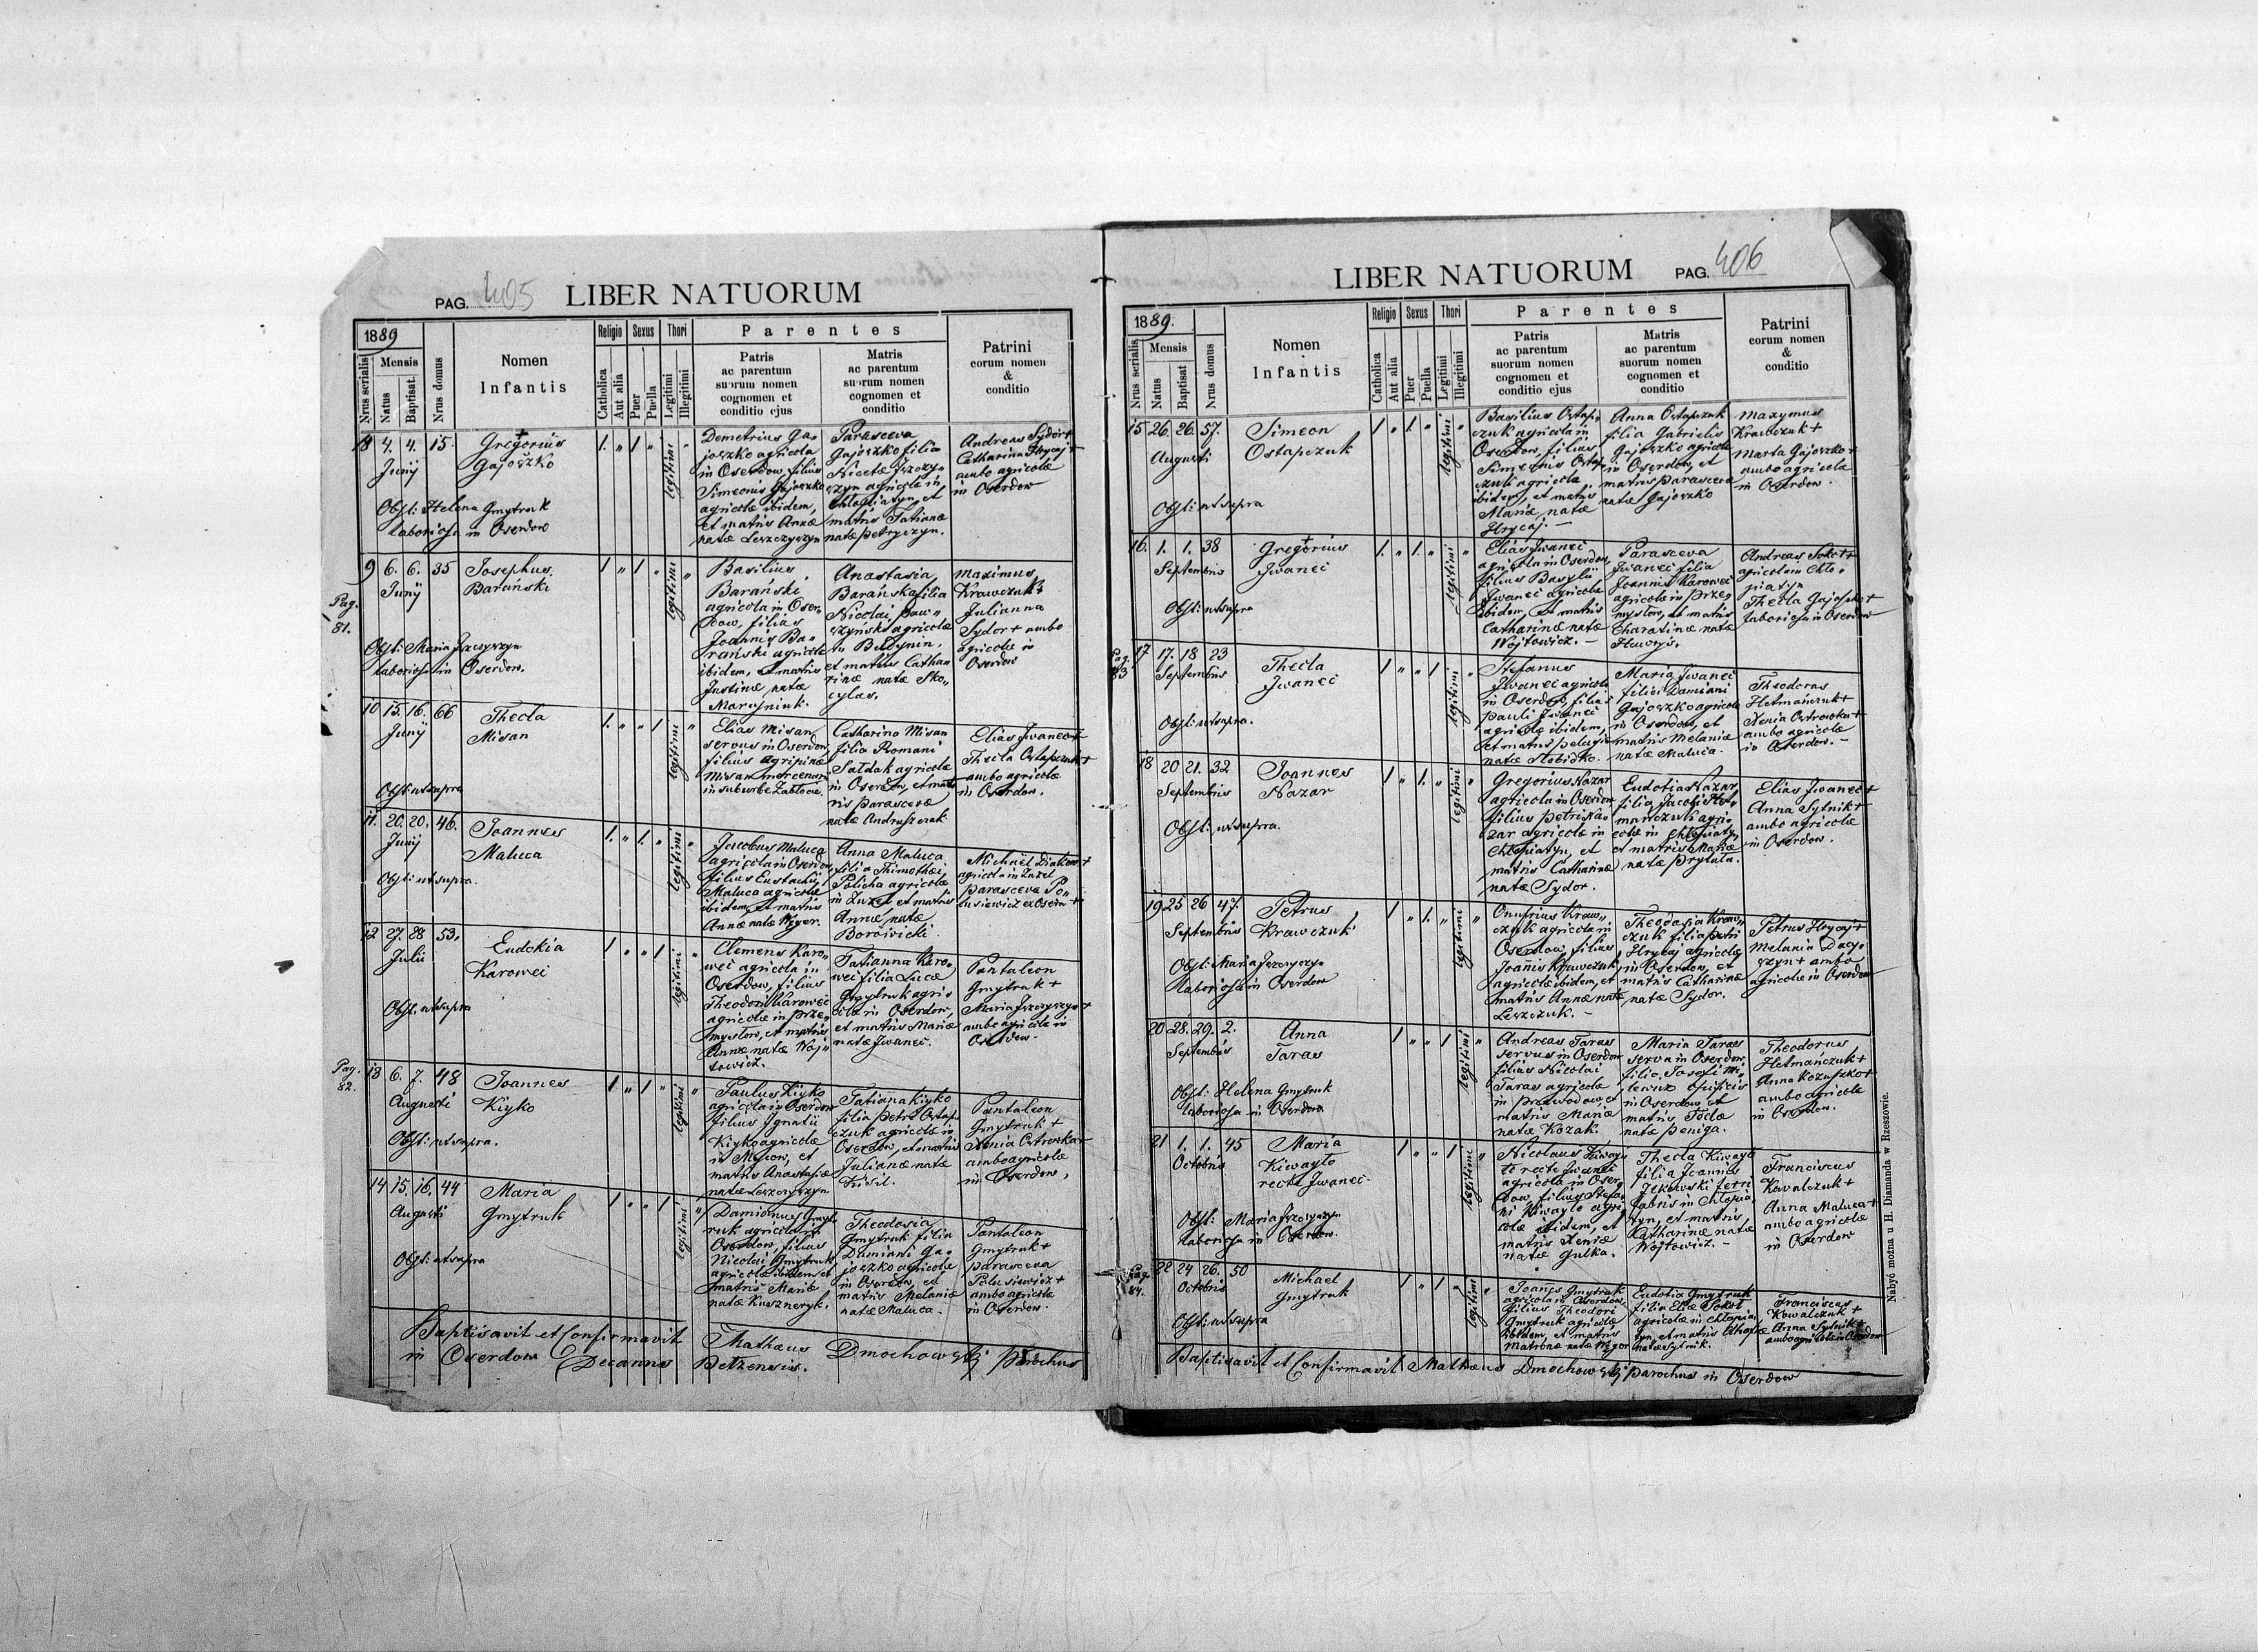 PAG. 405 LIBER NATUORUM
1889
Nrus serialis
Mensis
Natus
Baptisat.
Nrus domus
Nomen
Infantis
Religio
Catholica
Aut alia
Sexus
Puer
Puella
Thori
Legitimi
Illegitimi
Parentes
Patris
ac parentum
suorum nomen
cognomen et
conditio ejus
Matris
ac parentum
suorum nomen
cognomen et
conditio
Patrini
eorum nomen
&
conditio
4. 4. 15.
Junij
Gregorius
Gajoszko
Obst: Helena Gmytruk
laboriosa in Oserdow
1. " 1 " legitimi "
Demetrius Ga-
joszko agricola
in Oserdow, filius
Simeonis Gajoszko
agricolæ ibidem,
et matris Annæ
natæ Leszczyszyn
Parasceva
Gajoszko filia
Nicetæ Jszczy-
szyn agricolæ in
Chłopiatyn, et
matris Tatianæ
natæ Petryczyn.
Andreas Sydor +
Catharina Hrycaj +
ambo agricolæ
in Oserdow
Pag.
81.
9 6. 6. 35
Junij
Josephus
Barański
Obst: Maria Jszczyszyn
laboriosa in Oserdow.
1 " 1 " legitimi "
Basilius
Barański
agricola in Oser-
dow, filius
Joannis Ba-
rański agricolæ
ibidem, et matris
Justinæ natæ
Anastasia
Barańska filia
Nicolai
agricolæ
in Budynin,
et matris Catha-
rinæ natæ Sko-
cylas.
Maximus
Krawczuk +
Julianna
Sydor + ambo
agricolæ in
Oserdow
10 15. 16. 66
Junij
Thecla
Misan
Obst: ut supra
1. " " 1 legitimi "
Elias Misan
servus in Oserdow,
filius Agripinæ
Misan mercenari
in suburbe Zabłocie.
Catharina Misan
filia Romani
Sałdak agricolæ
in Oserdow, et mat-
ris Parascevæ
natæ Andruszczak
Elias Jwaneć +
Thecla Ostapczuk +
ambo agricolæ
in Oserdow.
11. 20. 20. 46.
Junij
Joannes
Maluca
Obst: ut supra.
1. " 1. " legitimi "
Jacobus Maluca
agricola in Oserdow
filius Eustachij
Maluca agricolæ
ibidem, et matris
Annæ natæ Węger.
Anna Maluca
filia Thimothei
Policha agricolæ
in Żużel et matris
Annæ natæ
Borowicki.
Michael Diakow +
agricola in Żużel
Parasceva Po-
lusiewicz ex Oserdow +
12 27. 28 53.
Julii
Eudokia
Karowei
Obst. ut supra
1 " " 1 legitimi "
Clemens Karo-
wei agricola in
Oserdow, filius
Theodori Karowei
agricolæ in Prze-
mysłow, et matris
Annæ natæ Woj-
towicz.
Tatianna Karo-
wei filia Lucæ
Gmytruk agri-
colæ in Oserdow,
et matris Mariæ
natæ Jwaneć.
Pantaleon
Gmytruk +
Maria Jszczyszyn +
ambo agricolæ in
Oserdow-
Pag.
82.
13 6. 7. 48
Augusti
Joannes
Kiyko
Obst: ut supra.
1 " 1 " legitimi "
Paulus Kiyko
agricola in Oserdow
filius Jgnatii
Kiyko agricolæ
in Mycow, et
matris Anastasiæ
natæ Leszczyszyn
Tatiana Kiyko
filia Petri Ostap-
czuk agricolæ in
Oserdow, et matris
Julianæ natæ
Kisil.
Pantaleon
Gmytruk +
Xenia Ostrowska +
ambo agricolæ
in Oserdow.
14 15. 16. 44
Augusti
Maria
Gmytruk
Obst: ut supra
1 " " 1 legitimi "
Damianus Gmyt-
ruk agricola in
Oserdow, filius
Nicolai Gmytruk
agricolæ ibidem et
matris Mariæ
natæ Kuszneryk.
Theodosia
Gmytruk filia
Damiani Ga-
joszko agricolæ
in Oserdow, et
matris Melaniæ
natæ Maluca.
Pantaleon
Gmytruk +
Parasceva
Polusiewicz +
ambo agricolæ
in Oserdow.
Baptisavit et Confirmavit Mathæus Dmochowskj Parochus
in Oserdow Decanus Betzensis.
LIBER NATUORUM PAG. 406
1889.
Nrus serialis
Mensis
Natus
Baptisat
Nrus domus
Nomen
Infantis
Religio
Catholica
Aut alia
Sexus
Puer
Puella
Thori
Legitimi
Illegitimi
Parentes
Patris
ac parentum
suorum nomen
cognomen et
conditio ejus
Matris
ac parentum
suorum nomen
cognomen et
conditio
Patrini
eorum nomen
&
conditio
15 26. 26. 57.
Augusti
Simeon
Ostapczuk
Obst: ut supra
1 " 1. " legitimi "
Basilius Ostap-
czuk agricola in
Oserdow, filius
Simeonis Ostap-
czuk agricolæ
ibidem, et matris
Mariæ natæ
Hrycaj. -
Anna Ostapczuk
filia Gabrielis
Gajoszko agricolæ
in Oserdow, et
matris Parasceva
natæ Gajoszko
Maxymus
Krawczuk +
Marta Gajoszko +
ambo agricolæ
in Oserdow.
16. 1. 1. 38
Septembris
Gregorius
Jwaneć
Obst: ut supra
1. " 1. " legitimi "
Elias Jwaneć
agricola in Oserdow,
filius Basylii
Jwaneć agricolæ
ibidem, et matris
Catharinæ natæ
Wojtowicz. -
Parasceva
Jwaneć filia
Joannis Karowei
agricolæ in Prze-
mysłow, et matris
Charatinæ natæ
Hawryś.
Andreas Sokoł +
agricola in Chło-
piatyn
Thecla Gajoszko +
laboriosa in Oserdow
Pag.
83
17 17. 18 23
Septembris
Thecla
Jwaneć
Obst: ut supra.
1 " " 1 legitimi "
Stefanus
Jwaneć agricola
in Oserdow, filius
Pauli Jwaneć
agricolæ ibidem,
et matris Pelagiæ
natæ Słobidko.
Maria Jwaneć
filia Damiani
Gajoszko agricolæ
in Oserdow, et
matris Melaniæ
natæ Maluca.
Theodorus
Hetmańczuk +
Xenia Ostrowska +
ambo agricolæ
in Oserdow. -
18 20 21. 32
Septembris
Joannes
Nazar
Obst: ut supra.
1 " 1. " legitimi "
Gregorius Nazar
agricola in Oserdow
filius Petri Na-
zar agricolæ in
Chłopiatyn, et
matris Catharinæ
natæ Sydor.
Eudotia Nazar
filia Jacobi Het-
manczuk agri-
colæ in Chłopiatyn,
et matris Mariæ
natæ Prytuła.
Elias Jwaneć +
Anna Sytnik +
ambo agricolæ
in Oserdow.
19 25 26 47.
Septembris
Petrus
Krawczuk
Obst: Maria Jszczyszyn
laboriosa in Oserdow
1 " 1. " legitimi "
Onufrius Kraw-
czuk agricola in
Oserdow, filius
Joannis Krawczuk
agricolæ ibidem, et
matris Annæ natæ
Leszczuk. -
Theodosia Kraw-
czuk filia Petri
Hrycaj agricolæ
in Oserdow, et
matris Catharinæ
natæ Sydor.
Petrus Hrycaj +
Melania Dacy-
szyn + ambo
agricolæ in Oserdow
20 28. 29. 2.
Septembris
Anna
Taras
Obst: Helena Gmytruk
laboriosa in Oserdow
1 " " 1 legitimi "
Andreas Taras
servus in Oserdow
filius Nicolai
Taras agricolæ
in Przewodow et
matris Mariæ
natæ Kozak.
Maria Taras
serva in Oserdow,
filia Josefi Mi-
lewuz opificis
in Oserdow et
matris Teclæ
natæ Peniga.
Theodorus
Hetmańczuk +
Anna Kozuszko +
ambo agricolæ
in Oserdow.
21 1. 1. 45
Octobris
Maria
Kiwayto
recte Jwaneć.
Obst: Maria Jszczyszyn
laboriosa in Oserdow.
1 " " 1 legitimi "
Nicolaus Kiway-
to recte Jwaneć
agricola in Oser-
dow, filius Stefa-
ni Kiwayto agri-
colæ ibidem, et
matris Xeniæ
natæ Gulka.
Thecla Kiwayto
filia Joannis
Jłkowski ferri
fabris in Chłopia-
tyn, et matris
Katharinæ natæ
Wojtowicz. -
Franciscus
Kowalczuk +
Anna Maluca +
ambo agricolæ
in Oserdow
Pag.
84.
22 24 26. 50
Octobris
Michael
Gmytruk
Obst: ut supra
1 " 1 " legitimi "
Joannes Gmytruk
agricola in Oserdow,
filius Theodori
Gmytruk agricolæ
ibidem, et matris
Matronæ natæ Węger
Eudotia Gmytruk
filia Eliæ Sokoł
agricolæ in Chłopia-
tyn, et matris Athafiæ
natæ Sytnik.
Franciscus
Kowalczuk +
Anna Sytnik +
ambo agricolæ in Oserdow
Baptisavit et Confirmavit Mathæus Dmochowskj Parochus in Oserdow
Nabyć można u H. Diamanda w Rzeszowie.